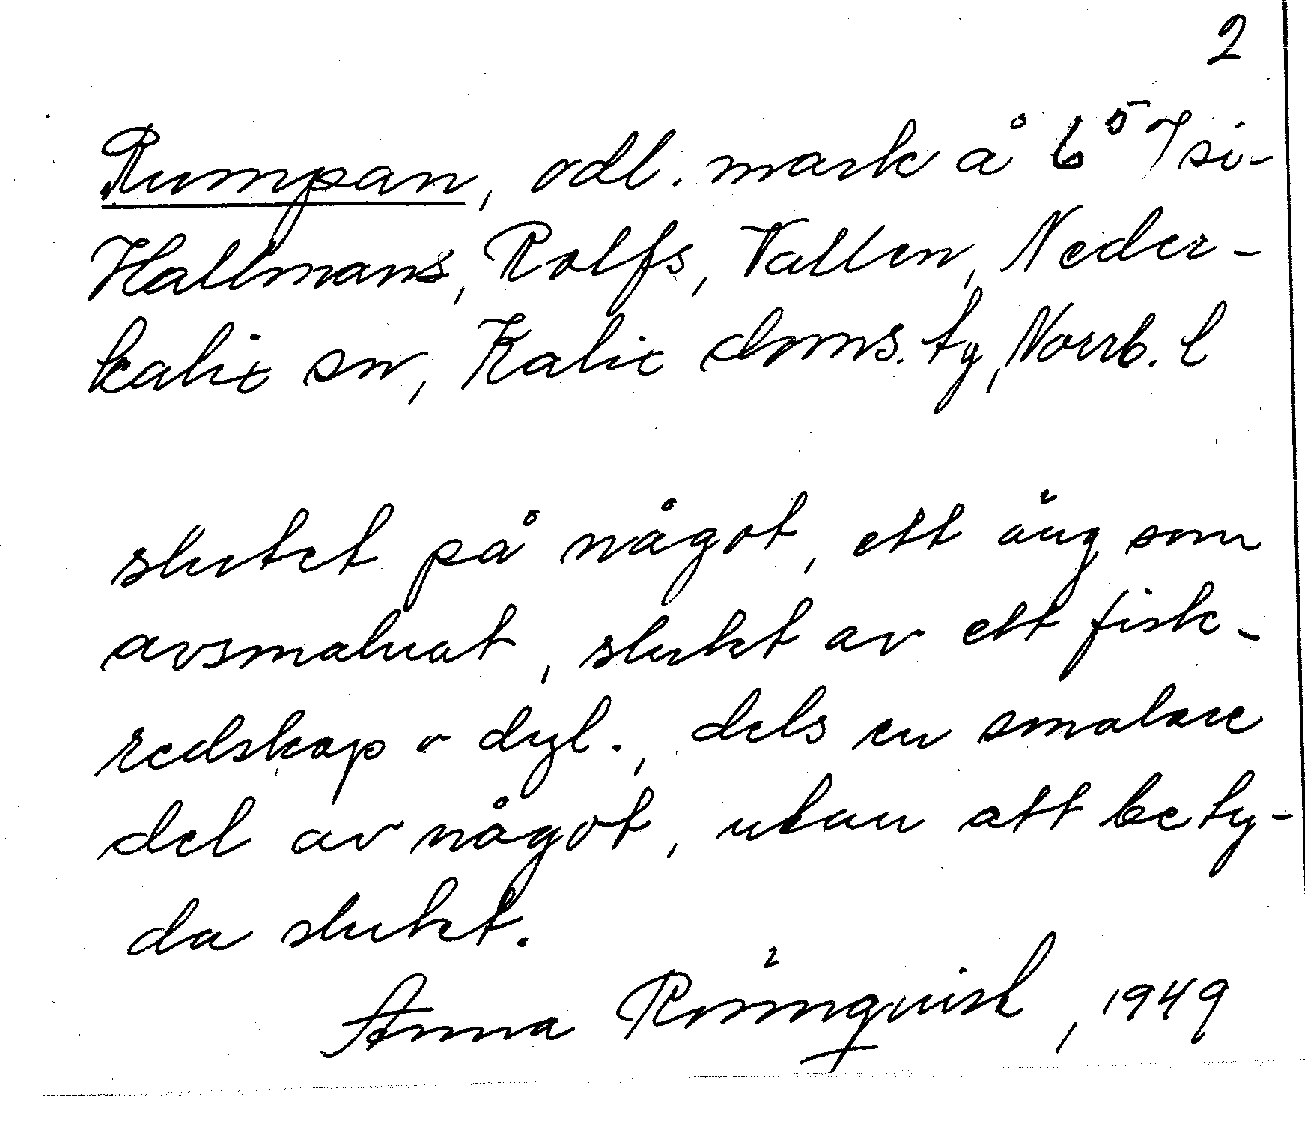 2
Rumpan, odl. mark å 6⁵ Tsi-
Hallmans, Rolfs, Vallen, Neder-
kalix sn, Kalix dms. tg, Norrb. l
slutet på något, ett äng som
avsmalnat, slutet av ett fisk-
redskap o dyl., dels en smalare
del av något, utan att bety-
da slutet.
Anna Rönnquist, 1949